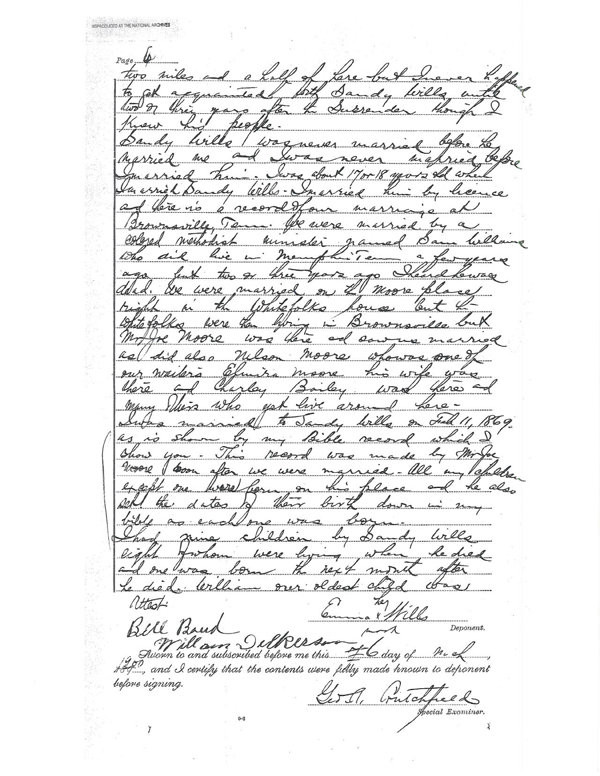 REPRODUCED AT THE NATIONAL ARCHIVES
Page 6
two miles and a half of here but I never happened
to get acquainted with Sandy Wills until
two or three years after the Surrender though I
knew his people.
Sandy Wills was never married before he
married me and I was never married before
I married him. I was about 17 or 18 years old when
I married Sandy Wills. I married him by licence
and there is a record of our marriage at
Brownsville, Tenn. We were married by a
colored methodist minister named Sam Williams
who did live in Memphis Tenn a few years
ago but two or three years ago I heard he was
dead. We were married on the Moore place
right in the Whitefolks house but the
whitefolks were then living in Brownsville but
Mr Joe Moore was there and saw us married
as did also Nelson Moore who was one of
our waiters Elmira Moore his wife was
there and Charley Bailey was there and
many others who yet live around here -
I was married to Sandy Wills on Feb 11, 1869
as is shown by my Bible record which I
show you. This record was made by Mr Joe
Moore soon after we were married. All my children
except one were born on his place and he also
set the dates of their birth down in my
bible as each one was born.
I had nine children by Sandy Wills
eight of whom were living when he died
and one was born the next month after
he died. William our oldest child was
Attest:
her
Emma x Wills
mark
Deponent.
Bill Bond
William Dilkerson
Sworn to and subscribed before me this 26 day of Mch
1900, and I certify that the contents were fully made known to deponent
before signing.
Geo. A. Crutchfield
Special Examiner.